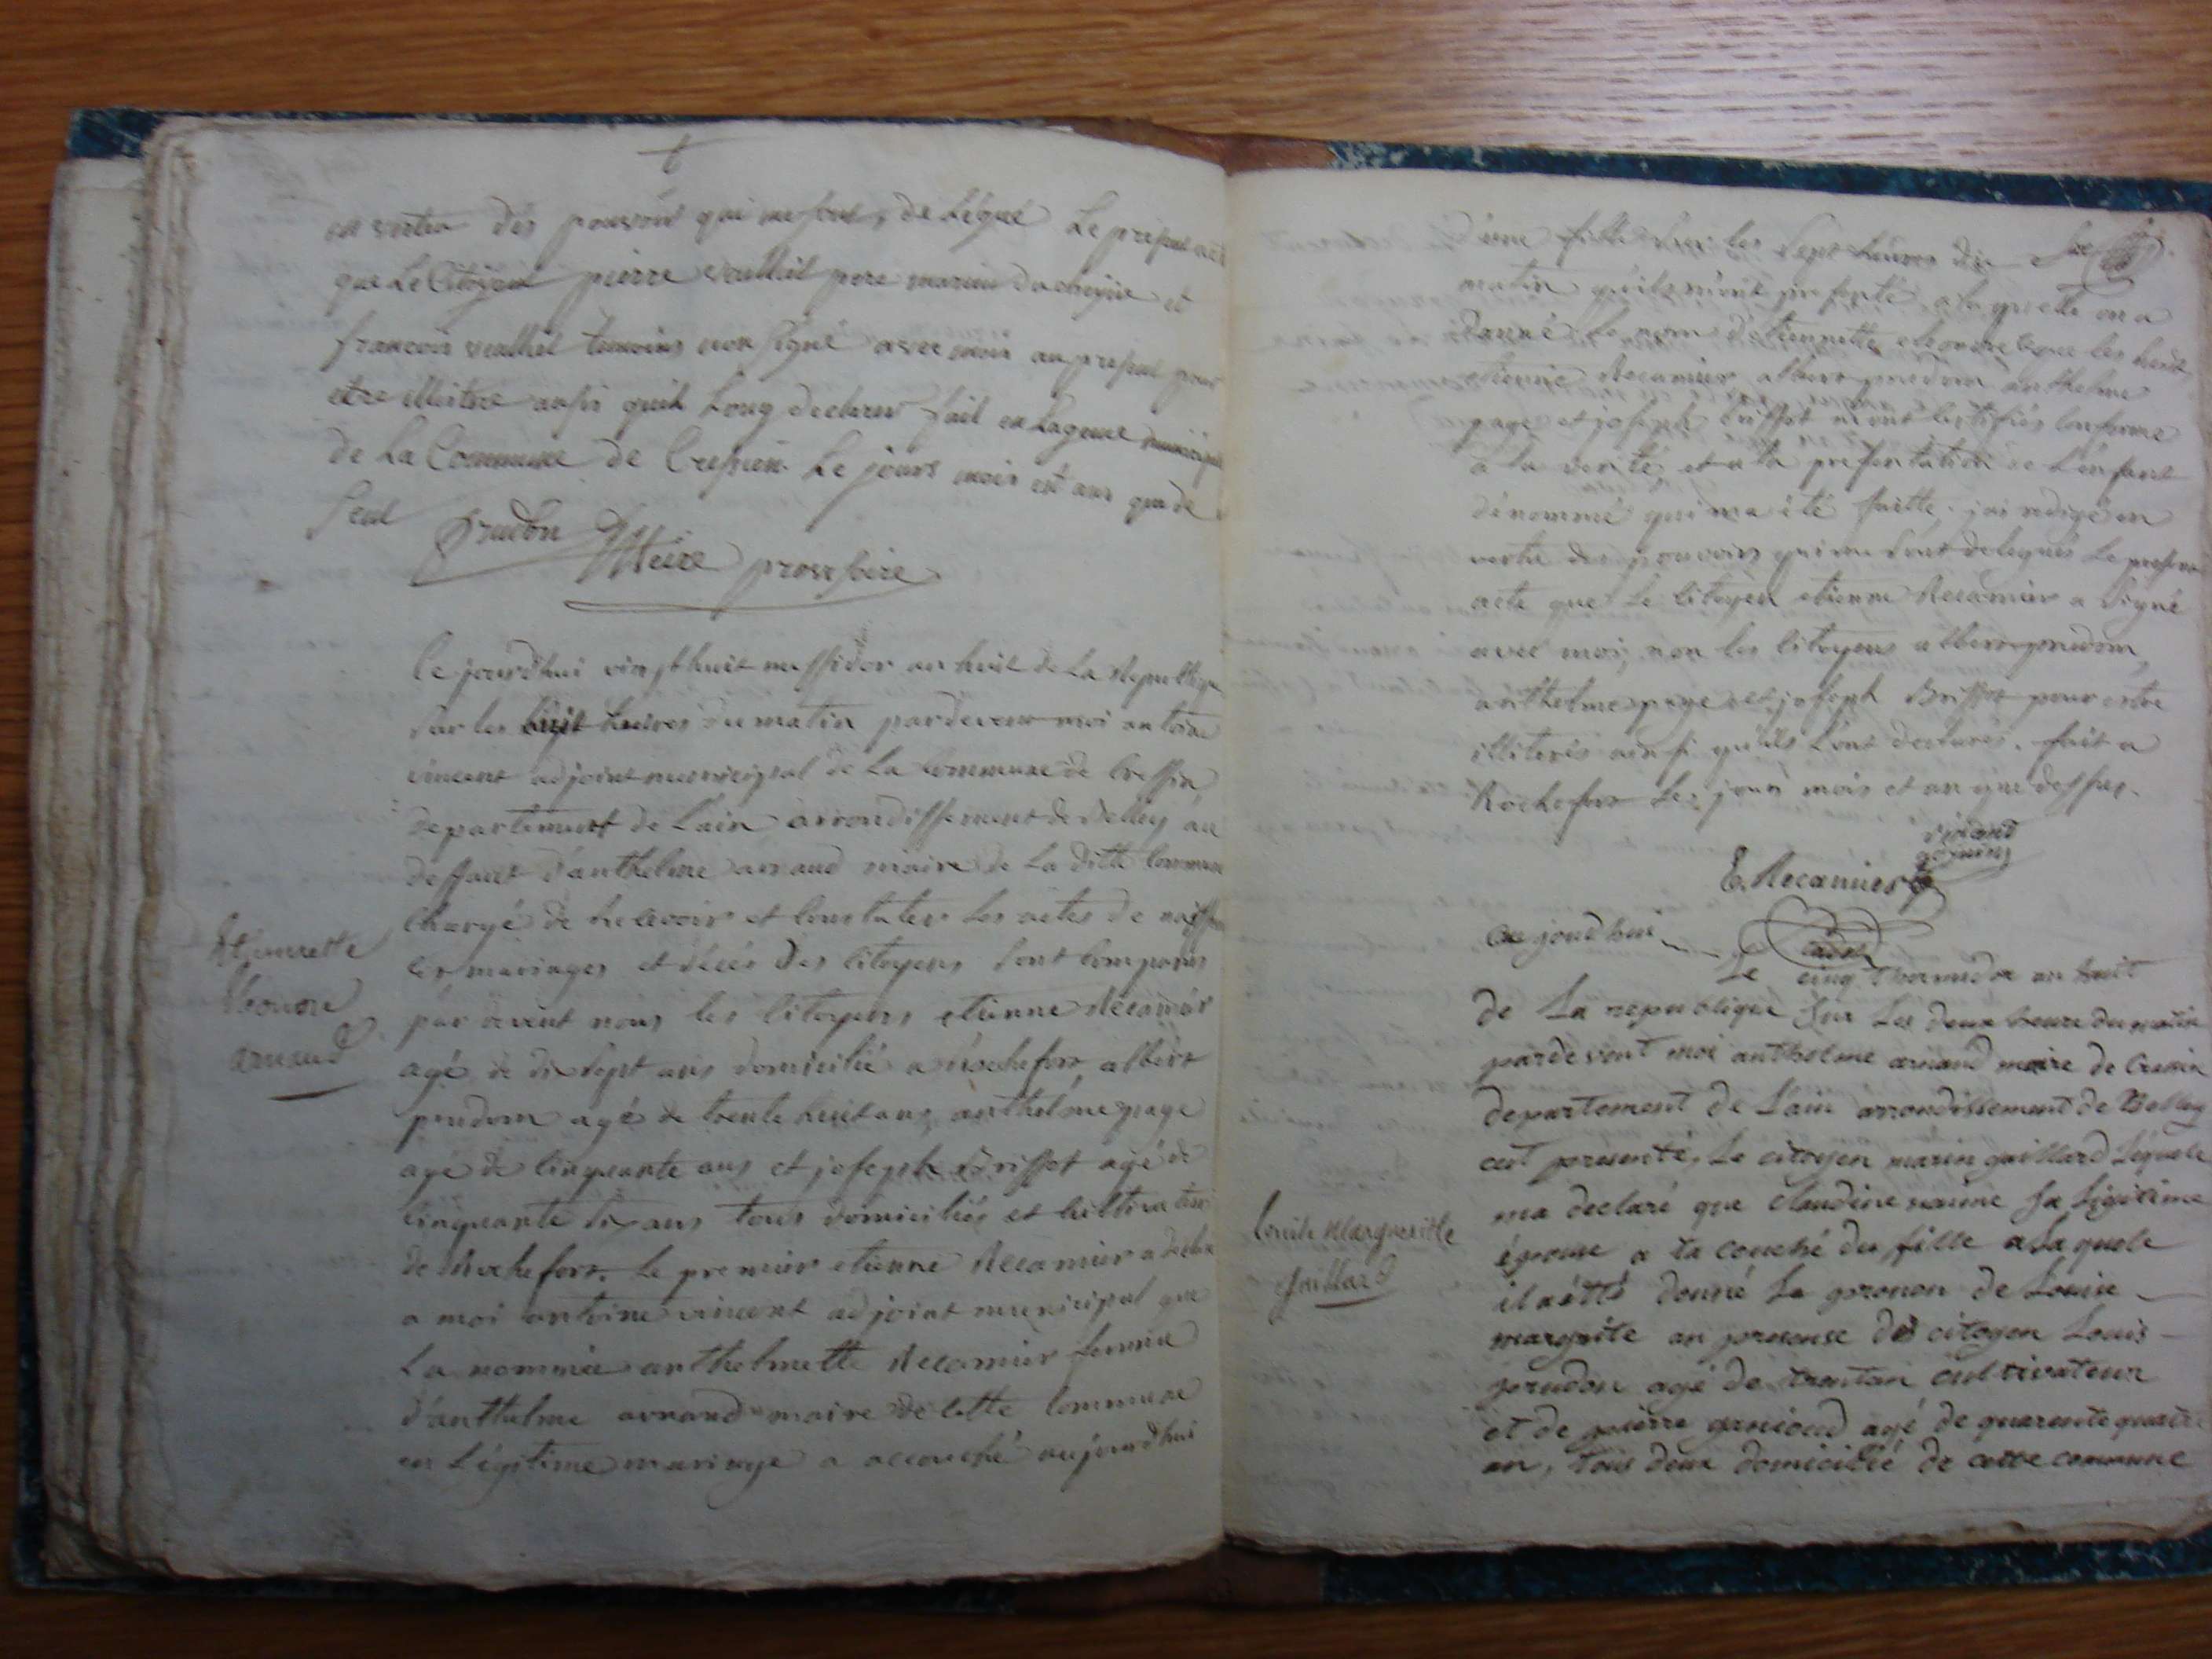 en vertu des pouvoir qui me sont, de Légué Le present act
que Le Citoyen pierre veulliel pere marin duchesne et
francois veulliel temoins non signé avec moi au present pour
etre illeitre ansi quil Long declarer fait en La maison municipal
de La Commune de Cressin Le jours mois est ans que de
seut
prudon Meire provisoire
Ce jourd'hui vingt huit messidor an huit de La Republique
sur les huit heures du matin pardevent moi antoine
vincent adjoint municipal de La Commune de Cressin
departement de L'ain arrondissement de Belley au
deffaut d'anthelme arnaud maire de La ditte Commune
Chargé de recevoir et Constater Les actes de naissan
ces mariages et déces Des Citoyens sont Comparus
par devent nous les Citoyens etienne Recamier
agé de dix sept ans domicilié a Rochefort, albert
prudom agé de trente huit ans, anthelme page
agé de Cinquante ans et joseph Brissot agé de
Cinquante six ans tous domiciliés et Cultivateurs
de Rochefort. Le premier etienne Recamier a declaré
a moi antoine vincent adjoint municipal que
La nommée anthelmette Recamier femme
d'anthelme arnaud maire de Cette Commune
en Légitime mariage a accouché aujourd'hui
Etiennette
arnaud
d'une fille sur les sept heures du
matin qu'ils m'ont presenté, a laquelle on a
donné Le nom d'Etiennette eleonore que les susdit
etienne Recamier albert prudom anthelme
page et joseph brissot m'ont Certifiés Conforme
à la verité, et a la presentation de L'enfant
dénommé qui m'a été faitte. j'ai redigé en
vertu des pouvoirs qui me sont delegués Le present
acte que Le Citoyen etienne Recamier a signé
avec moi, non les Citoyens albert prudom,
anthelme page et joseph Brissot pour estre
illiterés ainsi qu'ils L'ont declarés. fait a
Rochefort Les jours mois et an que dessus.
E. Recamier
aujoudhui
Le cinq thermidor an huit
de La republique sur Les deux heure du matin
pardevent moi anthelme arnaud maire de Cressin
departement de L'ain arrondissement de Belley
est presenté, Le citoyen marin guillard Lequele
ma declaré que Claudine name sa Ligitime
épouse a ta couché du fille a La quele
il a étté donné Le pronon de Louise
margrite an presense des citoyen Louis
prudon agé de trantan cultivateur
et de pierre genioud agé de quarente quatre
an, tous deux domicilié de cette commune
Louise Margueritte
Guillard